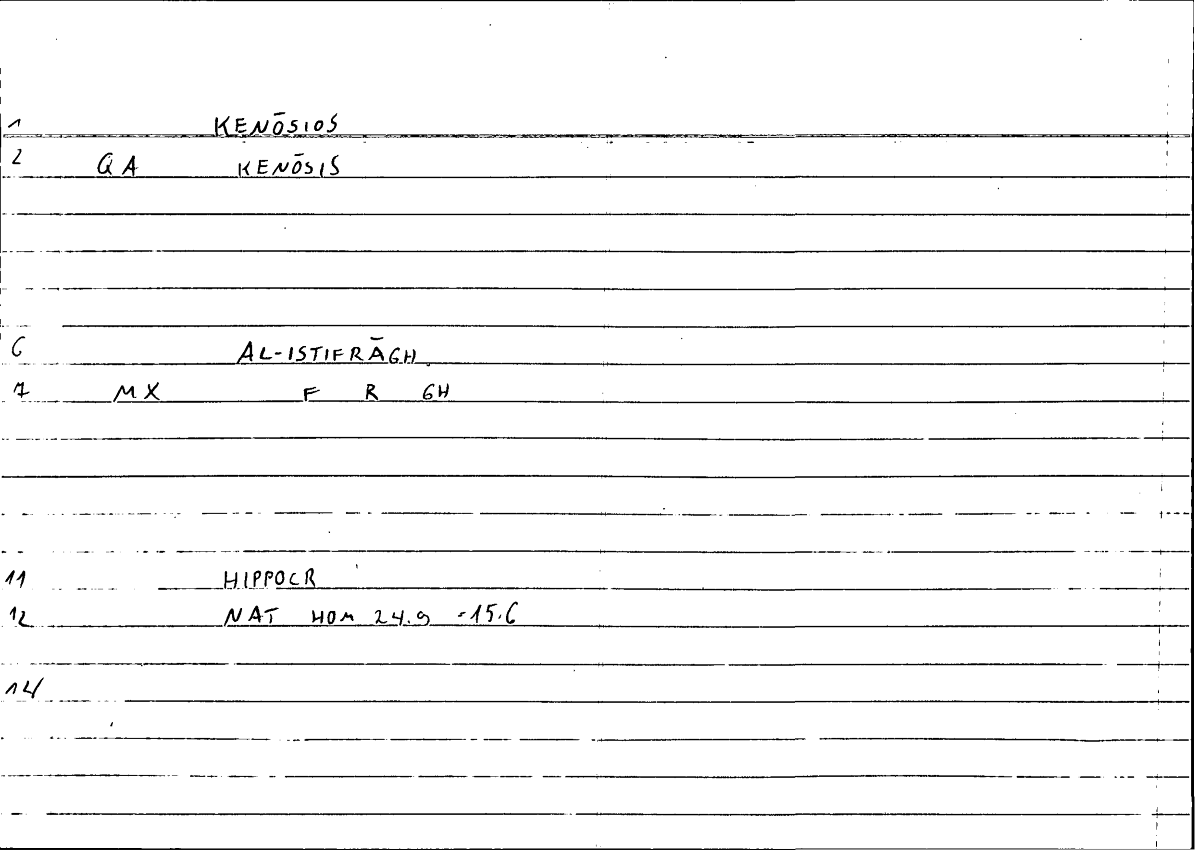 1 KENŌSIOS
2 QA KENŌSIS
6 AL-ISTIFRĀGH
7 MX F R GH
11 HIPPOCR
12 NAT HOM 24.9 =15.6
14